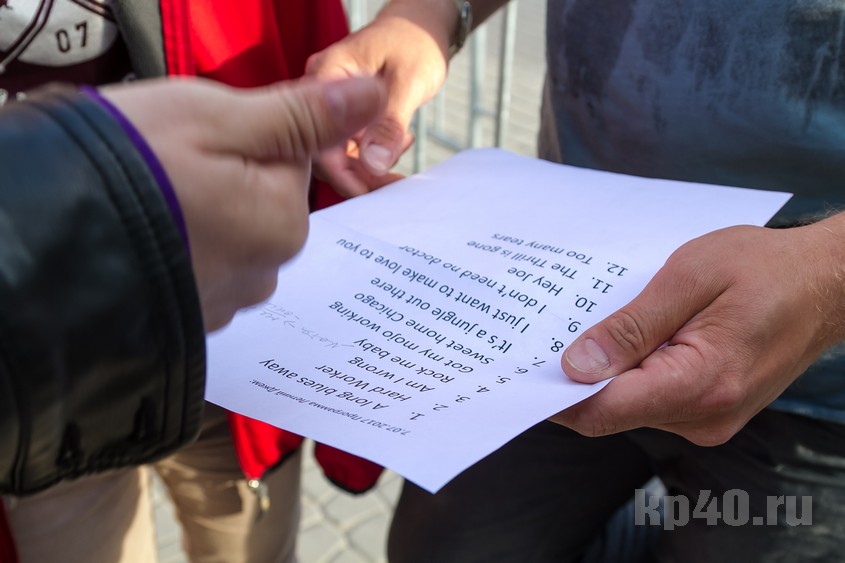 07
7.07.2017 Программа Летний Джем:
1. A long blues away
2. Hard Worker
3. Am I wrong
4. Rock me baby
5. Got my mojo working
6. sweet home Chicago
7. It's a jungle out there
8. I just want to make love to you
9. I don't need no doctor
10. Hey Joe
11. The Thrill is gone
12. Too many tears
kp40.ru